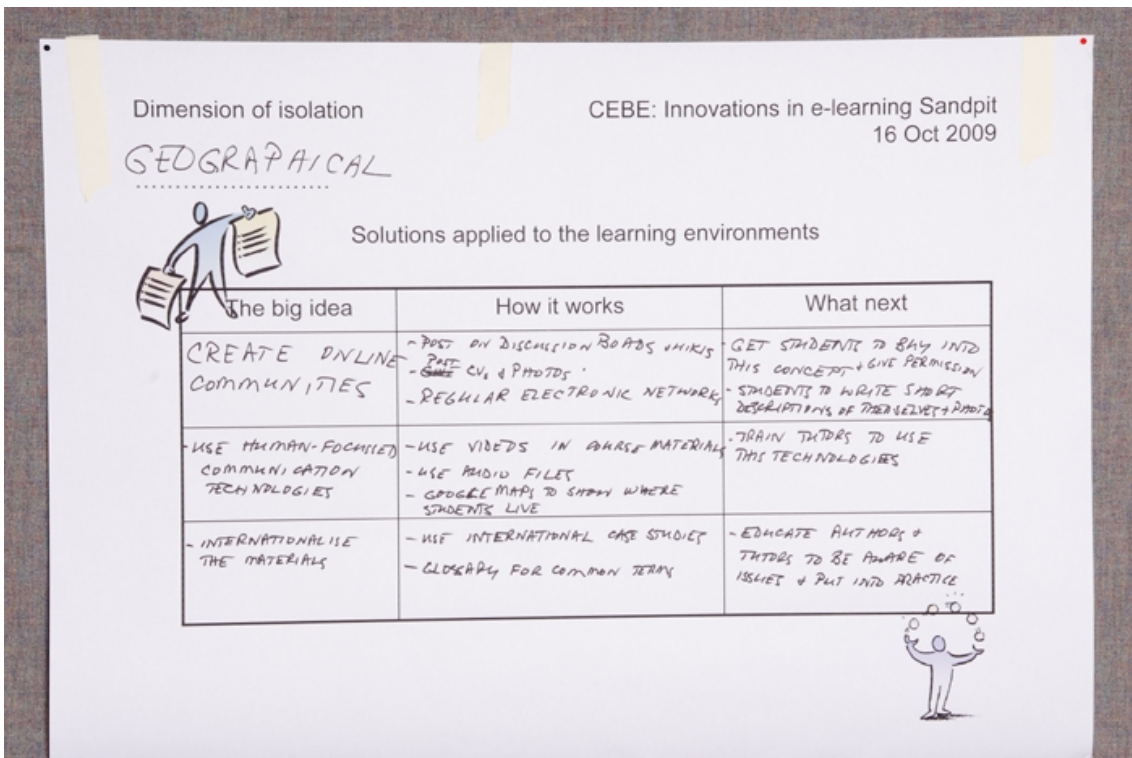 Dimension of isolation
CEBE: Innovations in e-learning Sandpit
16 Oct 2009
GEOGRAPAICAL
Solutions applied to the learning environments
The big idea
How it works
What next
CREATE ONLINE
COMMUNITIES
- POST ON DISCUSSION BOADS + WIKIS
- POST CVs + PHOTOS
- REGULAR ELECTRONIC NETWORKS
- GET STUDENTS TO BUY INTO
THIS CONCEPT + GIVE PERMISSION
- STUDENTS TO WRITE SHORT
DESCRIPTIONS OF THEMSELVES + PHOTO
- USE HUMAN-FOCUSSED
COMMUNICATION
TECHNOLOGIES
- USE VIDEOS IN COURSE MATERIALS
- USE AUDIO FILES
- GOOGLE MAPS TO SHOW WHERE
STUDENTS LIVE
- TRAIN TUTORS TO USE
THIS TECHNOLOGIES
- INTERNATIONALISE
THE MATERIALS
- USE INTERNATIONAL CASE STUDIES
- GLOSSARY FOR COMMON TERMS
- EDUCATE AUTHORS +
TUTORS TO BE AWARE OF
ISSUES + PUT INTO PRACTICE